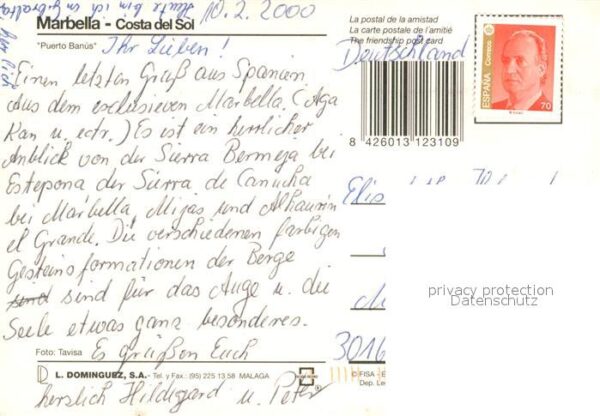 Marbella - Costa del Sol
10.2.2000
"Puerto Banús"
Ihr Lieben!
Einen letzten Gruß aus Spanien
Aus dem exclusieven Marbella. (Aga
Kan u. ectr.) Es ist ein herrlicher
Anblick von der Sierra Bermeja bei
Estepona der Sierra de Canucha
bei Marbella, Mijas und Alhaurin
el Grande. Die verschiedenen farbigen
Gesteinsformationen der Berge
sind sind für das Auge u. die
Seele etwas ganz besonderes.
Es grüßen Euch
herzlich Hildegard u. Peter
Heute bin ich in Gibraltar
Foto: Tavisa
L. DOMINGUEZ, S.A. - Tel. y Fax.: (95) 225 13 58 MALAGA
La postal de la amistad
La carte postale de l'amitié
The friendship post card
Deutschland
8 426013 123109
ESPAÑA
Correos
70
Elis
3016
privacy protection
Datenschutz
© FISA - E
Dep. Le